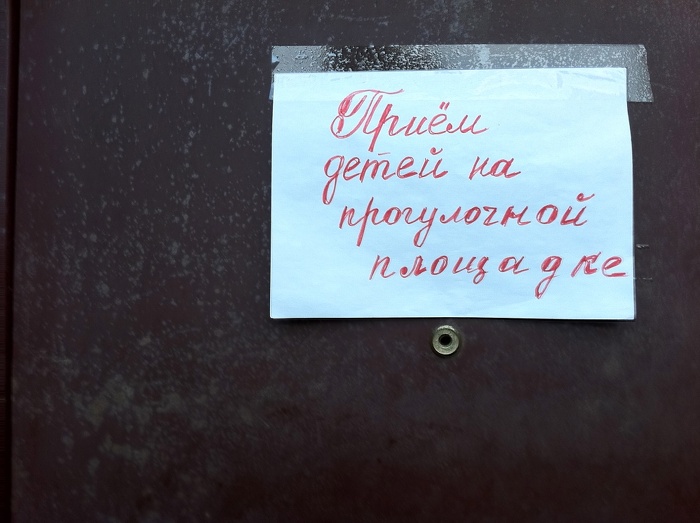 Приём
детей на
прогулочной
площадке